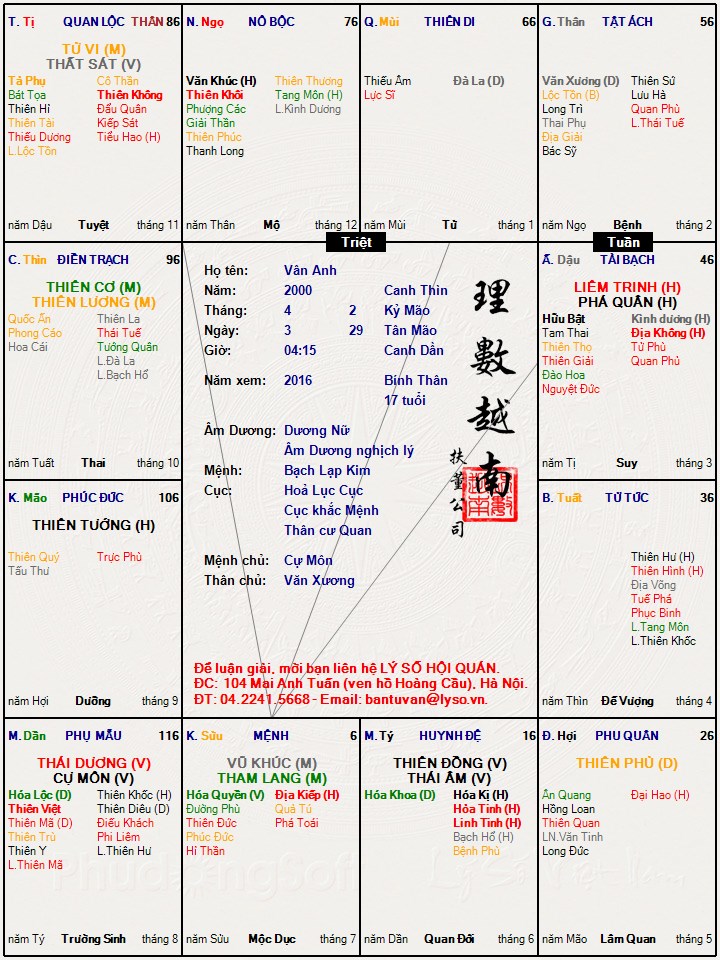 T. Tị QUAN LỘC THÂN 86
TỬ VI (M)
THẤT SÁT (V)
Tả Phụ Cô Thần
Bát Tọa Thiên Không
Thiên Hỉ Đẩu Quân
Thiên Tài Kiếp Sát
Thiếu Dương Tiểu Hao (H)
L.Lộc Tồn
năm Dậu Tuyệt tháng 11
N. Ngọ NÔ BỘC 76
Văn Khúc (H) Thiên Thương
Thiên Khôi Tang Môn (H)
Phượng Các L.Kình Dương
Giải Thần
Thiên Phúc
Thanh Long
năm Thân Mộ tháng 12
Q. Mùi THIÊN DI 66
Thiếu Âm Đà La (D)
Lực Sĩ
năm Mùi Tử tháng 1
G. Thân TẬT ÁCH 56
Văn Xương (D) Thiên Sứ
Lộc Tồn (B) Lưu Hà
Long Trì Quan Phù
Thai Phụ L.Thái Tuế
Địa Giải
Bác Sỹ
năm Ngọ Bệnh tháng 2
Triệt
Tuần
C. Thìn ĐIỀN TRẠCH 96
THIÊN CƠ (M)
THIÊN LƯƠNG (M)
Quốc Ấn Thiên La
Phong Cáo Thái Tuế
Hoa Cái Tướng Quân
L.Đà La
L.Bạch Hổ
năm Tuất Thai tháng 10
Họ tên: Vân Anh
Năm: 2000 Canh Thìn
Tháng: 4 2 Kỷ Mão
Ngày: 3 29 Tân Mão
Giờ: 04:15 Canh Dần
Năm xem: 2016 Bính Thân
17 tuổi
Âm Dương: Dương Nữ
Âm Dương nghịch lý
Mệnh: Bạch Lạp Kim
Cục: Hoả Lục Cục
Cục khắc Mệnh
Thân cư Quan
Mệnh chủ: Cự Môn
Thân chủ: Văn Xương
理數越南
扶董公司
Để luận giải, mời bạn liên hệ LÝ SỐ HỘI QUÁN.
ĐC: 104 Mai Anh Tuấn (ven hồ Hoàng Cầu), Hà Nội.
ĐT: 04.2241.5668 - Email: bantuvan@lyso.vn.
Ấ. Dậu TÀI BẠCH 46
LIÊM TRINH (H)
PHÁ QUÂN (H)
Hữu Bật Kình dương (H)
Tam Thai Địa Không (H)
Thiên Thọ Tử Phù
Thiên Giải Quán Phủ
Đào Hoa
Nguyệt Đức
năm Tị Suy tháng 3
K. Mão PHÚC ĐỨC 106
THIÊN TƯỚNG (H)
Thiên Quý Trực Phù
Tấu Thư
năm Hợi Dưỡng tháng 9
B. Tuất TỬ TỨC 36
Thiên Hư (H)
Thiên Hình (H)
Địa Võng
Tuế Phá
Phục Binh
L.Tang Môn
L.Thiên Khốc
năm Thìn Đế Vượng tháng 4
M. Dần PHỤ MẪU 116
THÁI DƯƠNG (V)
CỰ MÔN (V)
Hóa Lộc (D) Thiên Khốc (H)
Thiên Việt Thiên Diêu (D)
Thiên Mã (D) Điếu Khách
Thiên Trù Phi Liêm
Thiên Y L.Thiên Hư
L.Thiên Mã
năm Tý Trường Sinh tháng 8
K. Sửu MỆNH 6
VŨ KHÚC (M)
THAM LANG (M)
Hóa Quyền (V) Địa Kiếp (H)
Đường Phù Quả Tú
Thiên Đức Phá Toái
Phúc Đức
Hỉ Thần
năm Sửu Mộc Dục tháng 7
M. Tý HUYNH ĐỆ 16
THIÊN ĐỒNG (V)
THÁI ÂM (V)
Hóa Khoa (D) Hóa Kị (H)
Hỏa Tinh (H)
Linh Tinh (H)
Bạch Hổ (H)
Bệnh Phù
năm Dần Quan Đới tháng 6
Đ. Hợi PHU QUÂN 26
THIÊN PHỦ (D)
Ân Quang Đại Hao (H)
Hồng Loan
Thiên Quan
LN.Văn Tinh
Long Đức
năm Mão Lâm Quan tháng 5